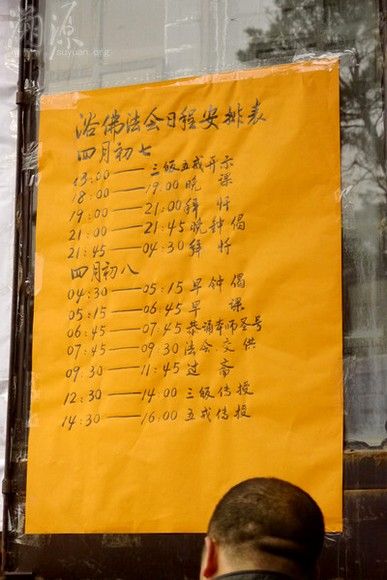 溯源
www.suyuan.org
浴佛法会日程安排表
四月初七
13:00——三皈五戒开示
18:00——19:00 晚 课
19:00——21:00 拜 忏
21:00——21:45 晚钟偈
21:45——04:30 拜 忏
四月初八
04:30——05:15 早钟偈
05:15——06:45 早 课
06:45——07:45 恭诵本师圣号
07:45——09:30 法会 供
09:30——11:45 过 斋
12:30——14:00 三皈传授
14:30——16:00 五戒传授